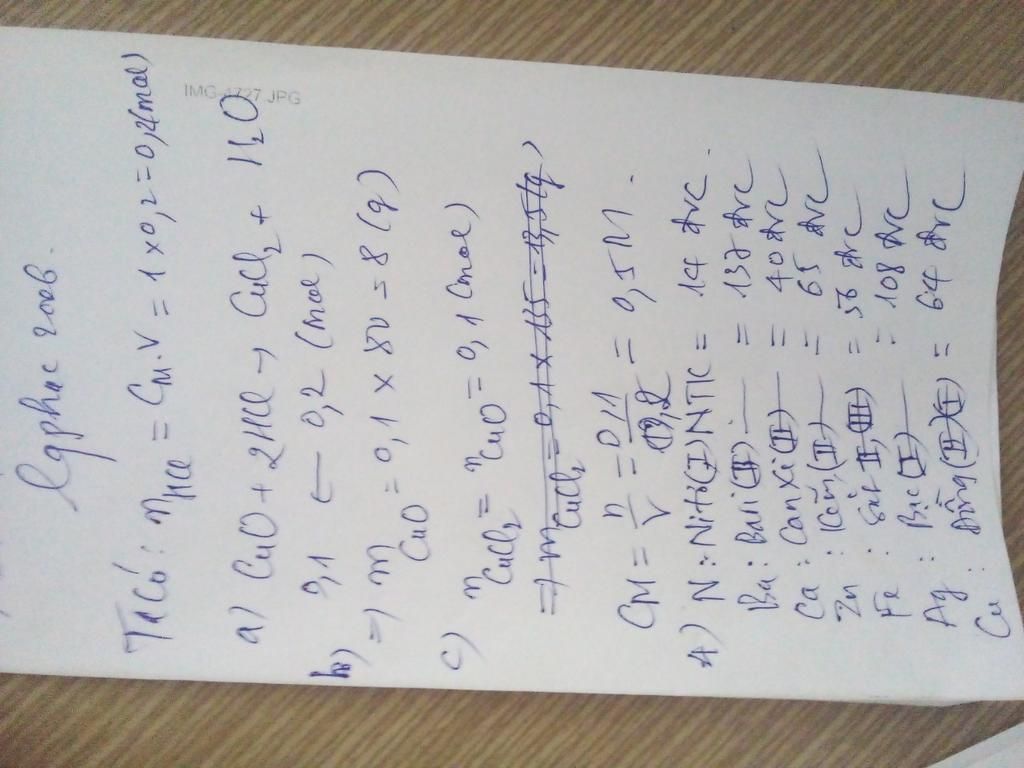 IMG-4727.JPG
Ta có: nHCl = CM.V = 1 x 0,2 = 0,2(mol)
a) CuO + 2HCl → CuCl2 + H2O
0,1 ← 0,2 (mol)
b) => mCuO = 0,1 x 80 = 8 (g)
c) nCuCl2 = nCuO = 0,1 (mol)
=> mCuCl2 = 0,1 x 135 = 13,5(g)
CM = n/V = 0,1/0,2 = 0,5M.
A) N : Nitơ(I) NTK = 14 đvC.
Ba : Bari(II) — = 137 đvC
Ca : Canxi(II) — = 40 đvC
Zn : Kẽm(II) — = 65 đvC
Fe : Sắt II, III = 56 đvC
Ag : Bạc(I) — = 108 đvC
Cu : Đồng(II)(I) = 64 đvC